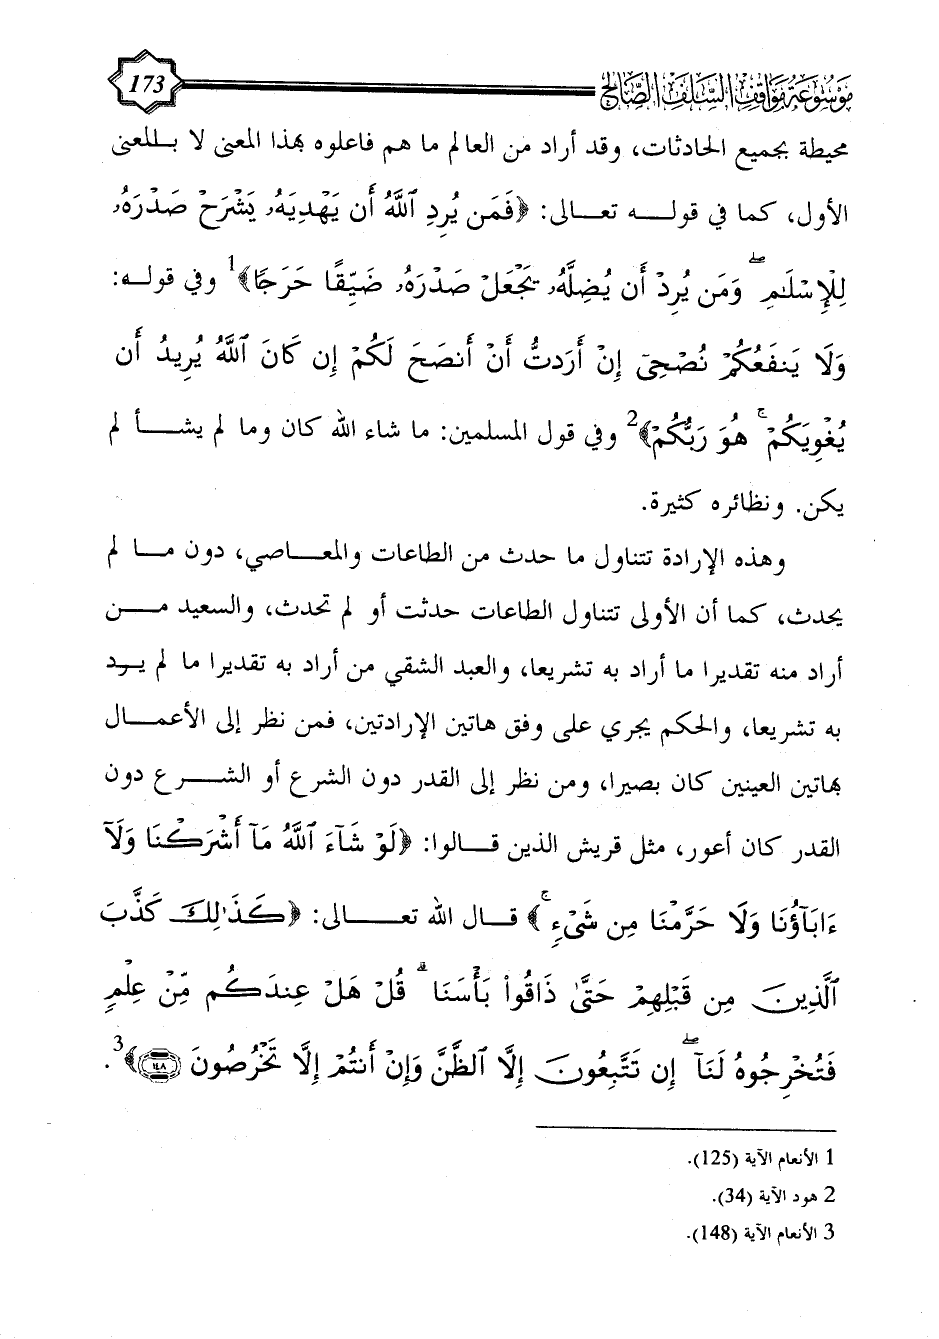 موسوعة مواقف السلف الصالح 173
محيطة بجميع الحادثات، وقد أراد من العالم ما هم فاعلوه بهذا المعنى لا بـالمعنى
الأول، كما في قولــه تعــالى: ﴿فَمَن يُرِدِ ٱللَّهُ أَن يَهْدِيَهُۥ يَشْرَحْ صَدْرَهُۥ
لِلْإِسْلَٰمِ ۖ وَمَن يُرِدْ أَن يُضِلَّهُۥ يَجْعَلْ صَدْرَهُۥ ضَيِّقًا حَرَجًا﴾1 وفي قولــه:
وَلَا يَنفَعُكُمْ نُصْحِىٓ إِنْ أَرَدتُّ أَنْ أَنصَحَ لَكُمْ إِن كَانَ ٱللَّهُ يُرِيدُ أَن
يُغْوِيَكُمْ ۚ هُوَ رَبُّكُمْ﴾2 وفي قول المسلمين: ما شاء الله كان وما لم يشــأ لم
يكن. ونظائره كثيرة.
وهذه الإرادة تتناول ما حدث من الطاعات والمعــاصي، دون مــا لم
يحدث، كما أن الأولى تتناول الطاعات حدثت أو لم تحدث، والسعيد مــن
أراد منه تقديرا ما أراد به تشريعا، والعبد الشقي من أراد به تقديرا ما لم يــرد
به تشريعا، والحكم يجري على وفق هاتين الإرادتين، فمن نظر إلى الأعمــال
بهاتين العينين كان بصيرا، ومن نظر إلى القدر دون الشرع أو الشــرع دون
القدر كان أعور، مثل قريش الذين قــالوا: ﴿لَوْ شَآءَ ٱللَّهُ مَآ أَشْرَكْنَا وَلَآ
ءَابَآؤُنَا وَلَا حَرَّمْنَا مِن شَىْءٍ ۚ﴾ قــال الله تعــالى: ﴿كَذَٰلِكَ كَذَّبَ
ٱلَّذِينَ مِن قَبْلِهِمْ حَتَّىٰ ذَاقُوا۟ بَأْسَنَا ۗ قُلْ هَلْ عِندَكُم مِّنْ عِلْمٍ
فَتُخْرِجُوهُ لَنَآ ۖ إِن تَتَّبِعُونَ إِلَّا ٱلظَّنَّ وَإِنْ أَنتُمْ إِلَّا تَخْرُصُونَ ١٤٨﴾3.
1 الأنعام الآية (125).
2 هود الآية (34).
3 الأنعام الآية (148).